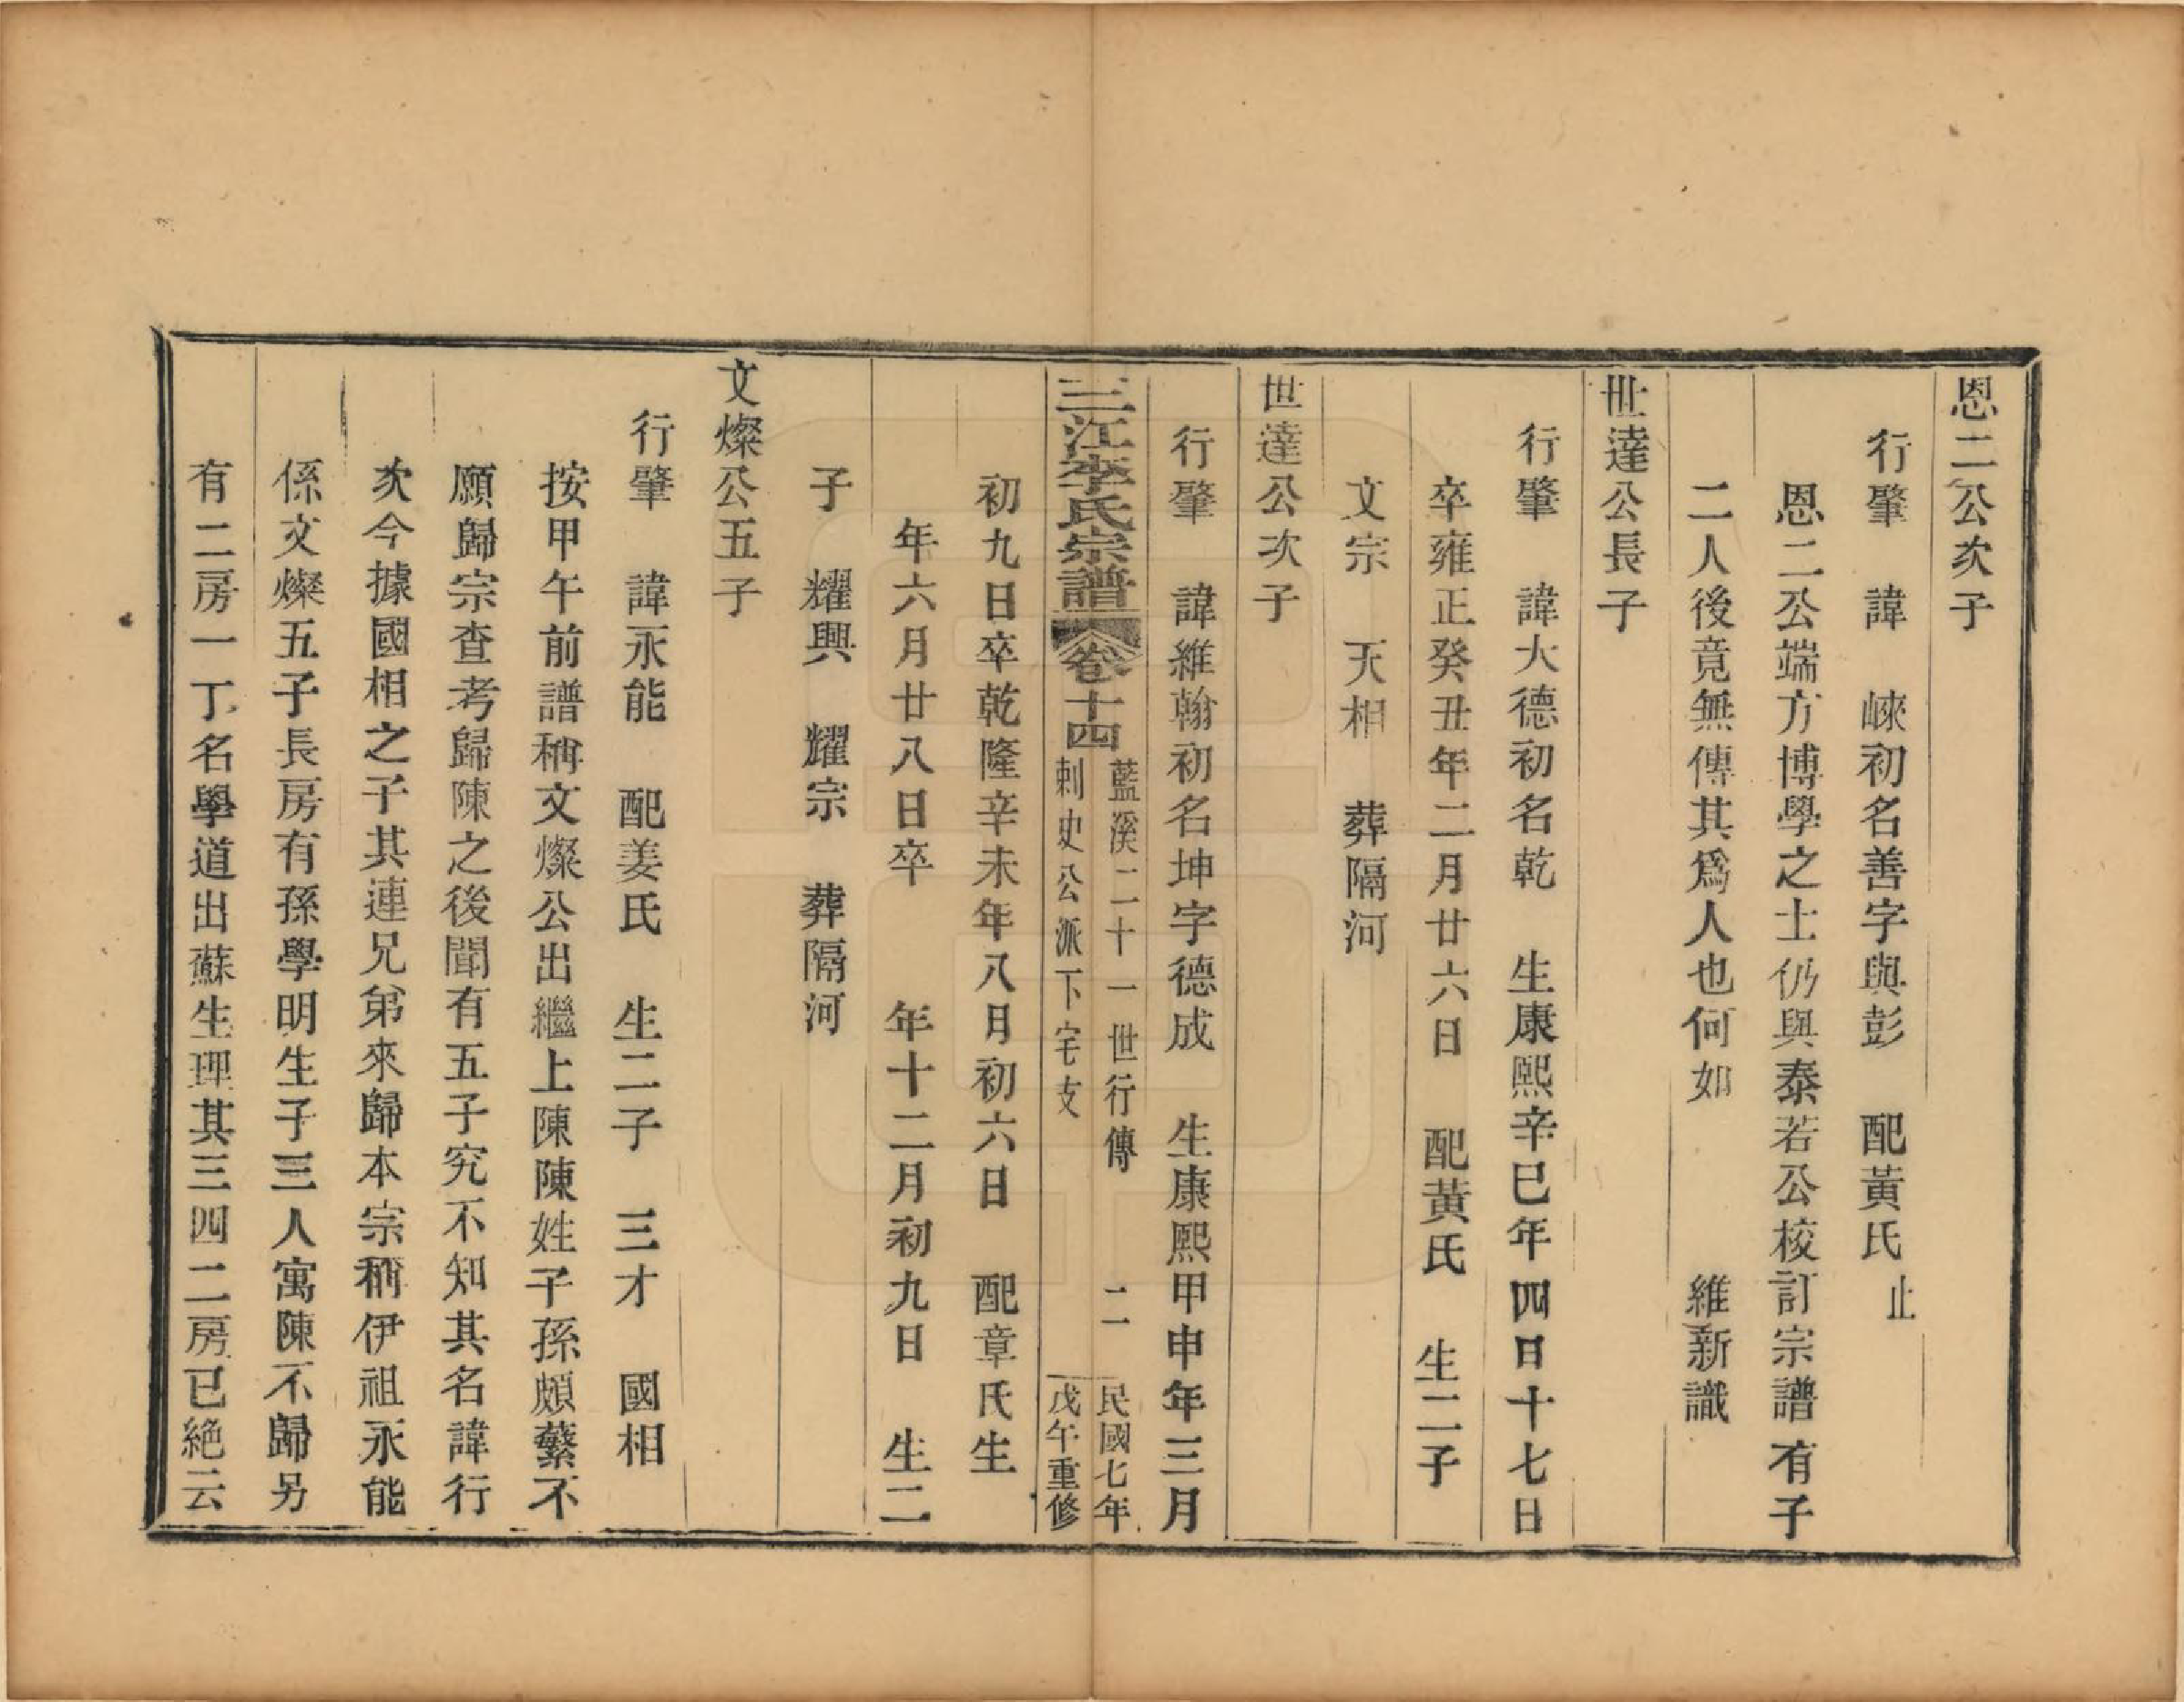 恩二公次子
行肇　諱　崍初名善字與彭　配黃氏　止
恩二公端方博學之士仍與泰若公校訂宗譜有子
二人後竟無傳其爲人也何如　　　維新識
世達公長子
行肇　諱大德初名乾　生康熙辛巳年四日十七日
卒雍正癸丑年二月廿六日　配黃氏　生二子
文宗　天相　葬隔河
世達公次子
行肇　諱維翰初名坤字德成　生康熙甲申年三月
三江李氏宗譜　卷十四　藍溪二十一世行傳　二　民國七年
刺史公派下宅支　戊午重修
初九日卒乾隆辛未年八月初六日　配章氏生
年六月廿八日卒　　年十二月初九日　生二
子　耀興　耀宗　葬隔河
文燦公五子
行肇　諱永能　配姜氏　生二子　三才　國相
按甲午前譜稱文燦公出繼上陳陳姓子孫頗蘩不
願歸宗查考歸陳之後聞有五子究不知其名諱行
次今據國相之子其連兄弟來歸本宗稱伊祖永能
係文燦五子長房有孫學明生子三人寓陳不歸另
有二房一丁名學道出蘇生理其三四二房已絶云